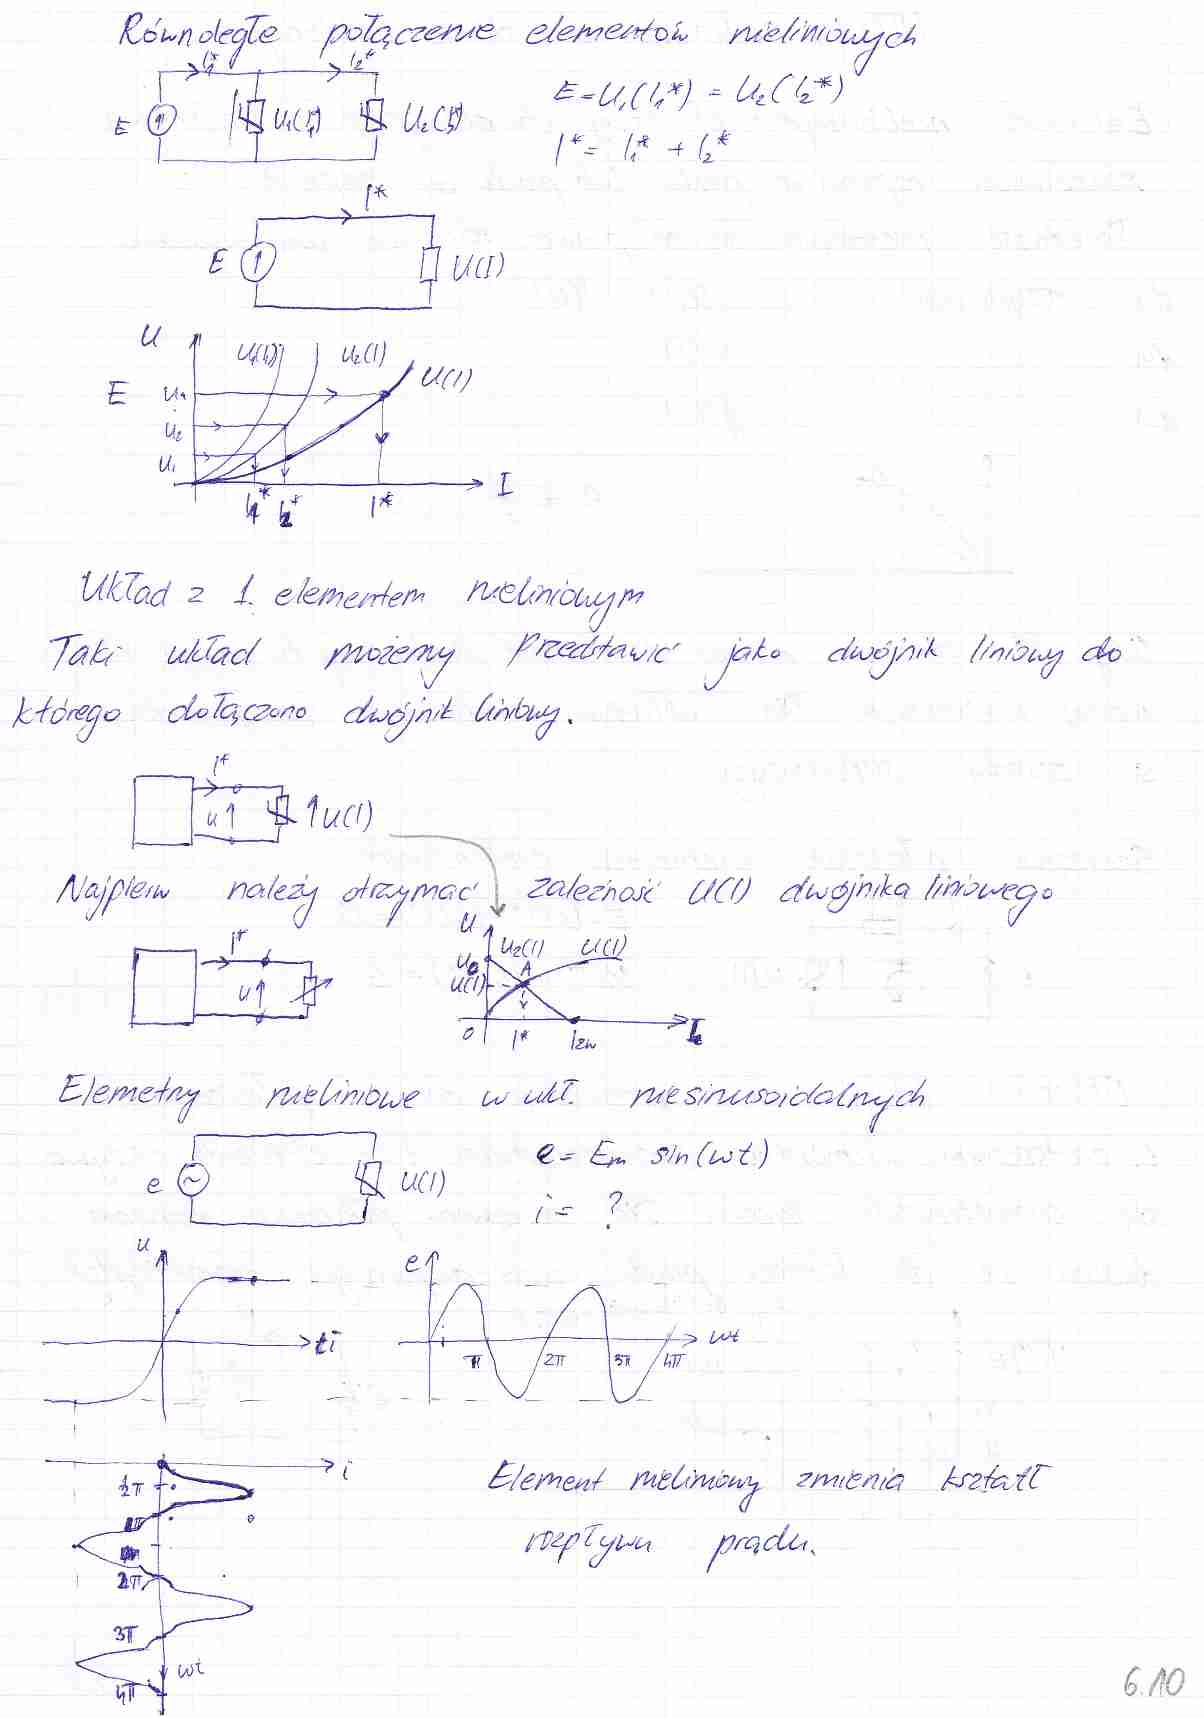 Równoległe połączenie elementów nieliniowych
I₁* I₂*
E U₁(I₁*) U₂(I₂*)
E=U₁(I₁*) = U₂(I₂*)
I*= I₁* + I₂*
I*
E U(I)
U
U₁(I) U₂(I) U(I)
E
U₂
U₁
I₁* I₂* I* I
Układ z 1. elementem nieliniowym
Taki układ możemy przedtawić jako dwójnik liniowy do
którego dołączono dwójnik liniowy.
I*
U U(I)
Najpierw należy otrzymać zależność U(I) dwójnika liniowego
I*
U
U
U₀ U₂(I) U(I)
U(I) A
0 I* Izw I
Elemetny nieliniowe w ukł. niesinusoidalnych
e U(I)
e= Em sin(wt)
i= ?
u
i
e
π 2π 3π 4π wt
i
½π
1π
2π
3π
wt
4π
Element nieliniowy zmienia kształt
rozpływu prądu.
6.10